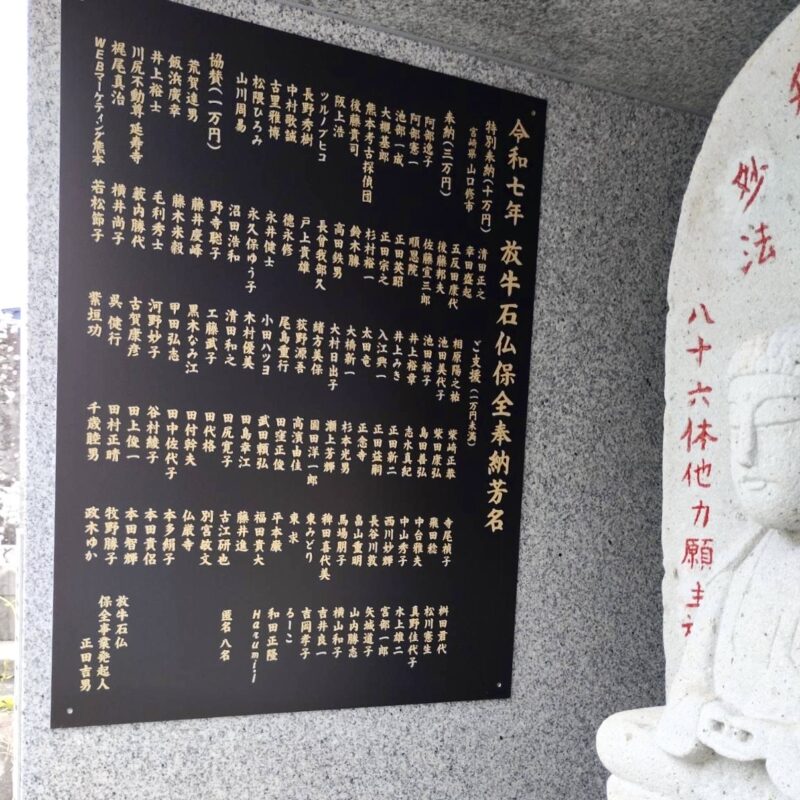 令和七年 放牛石仏保全奉納芳名
特別奉納(十万円)
宮崎県 山口修市
奉納(三万円)
阿部逸子
阿部憲一
池部一成
大槻基郎
熊本考古探偵団
後藤貴司
阪上浩
ツルノブヒコ
長野秀樹
中村歌誠
古里雅博
松隈ひろみ
山川周易
協賛(一万円)
荒賀達男
飯浜廣幸
井上裕士
川尻不動尊 延寿寺
梶尾真治
WEBマーケティング熊本
清田正之
幸田盛起
五反田康代
後藤邦夫
佐藤宣三郎
順恩院
正田英昭
正田宗之
杉村裕一
鈴木勝
高田鉄男
長曾我部久
戸上貴雄
徳永修
永井健士
永久保ゆう子
沼田浩和
野寺聡子
藤井慶峰
藤木米毅
毛利秀士
藪内勝代
横井尚子
若松節子
ご支援(一万円未満)
相原陽之祐
池田美代子
池田裕子
井上裕章
井上みき
入江興一
太田竜
大橋新一
大村日出子
緒方美保
荻野源吾
尾島重行
小田ハツヨ
木村優美
清田和之
工藤武子
黒木なみ江
甲田弘志
河野妙子
古賀康彦
呉 健行
紫垣功
柴崎正恭
柴田康弘
島田善弘
志水真紀
正田新二
正田益嗣
正念寺
杉本光男
瀬上芳輝
園田洋一郎
高濱由佳
田窪正俊
武田頼弘
田島幸江
田尻寛子
田代格
田付幹夫
田中佐代子
谷村綾子
田上俊一
田村正晴
千歳睦男
寺尾禎子
飛田稔
中台雅夫
中山秀子
西川妙輝
長谷川敦
畠山重明
馬場朋子
稗田喜代美
東みどり
東求
平木康
福田貴大
藤井進
古江研也
別宮敏文
仏厳寺
本多絹子
本田貴侶
本田智輝
牧野勝子
政木ゆか
桝田君代
松川憲生
真野佳代子
水上雄二
宮部一郎
矢城道子
山内勝志
横山和子
吉井良一
吉岡孝子
るーこ
和田正隆
Harumi.I
匿名 八名
放牛石仏
保全事業発起人
正田吉男
妙法
八十六体他力願主